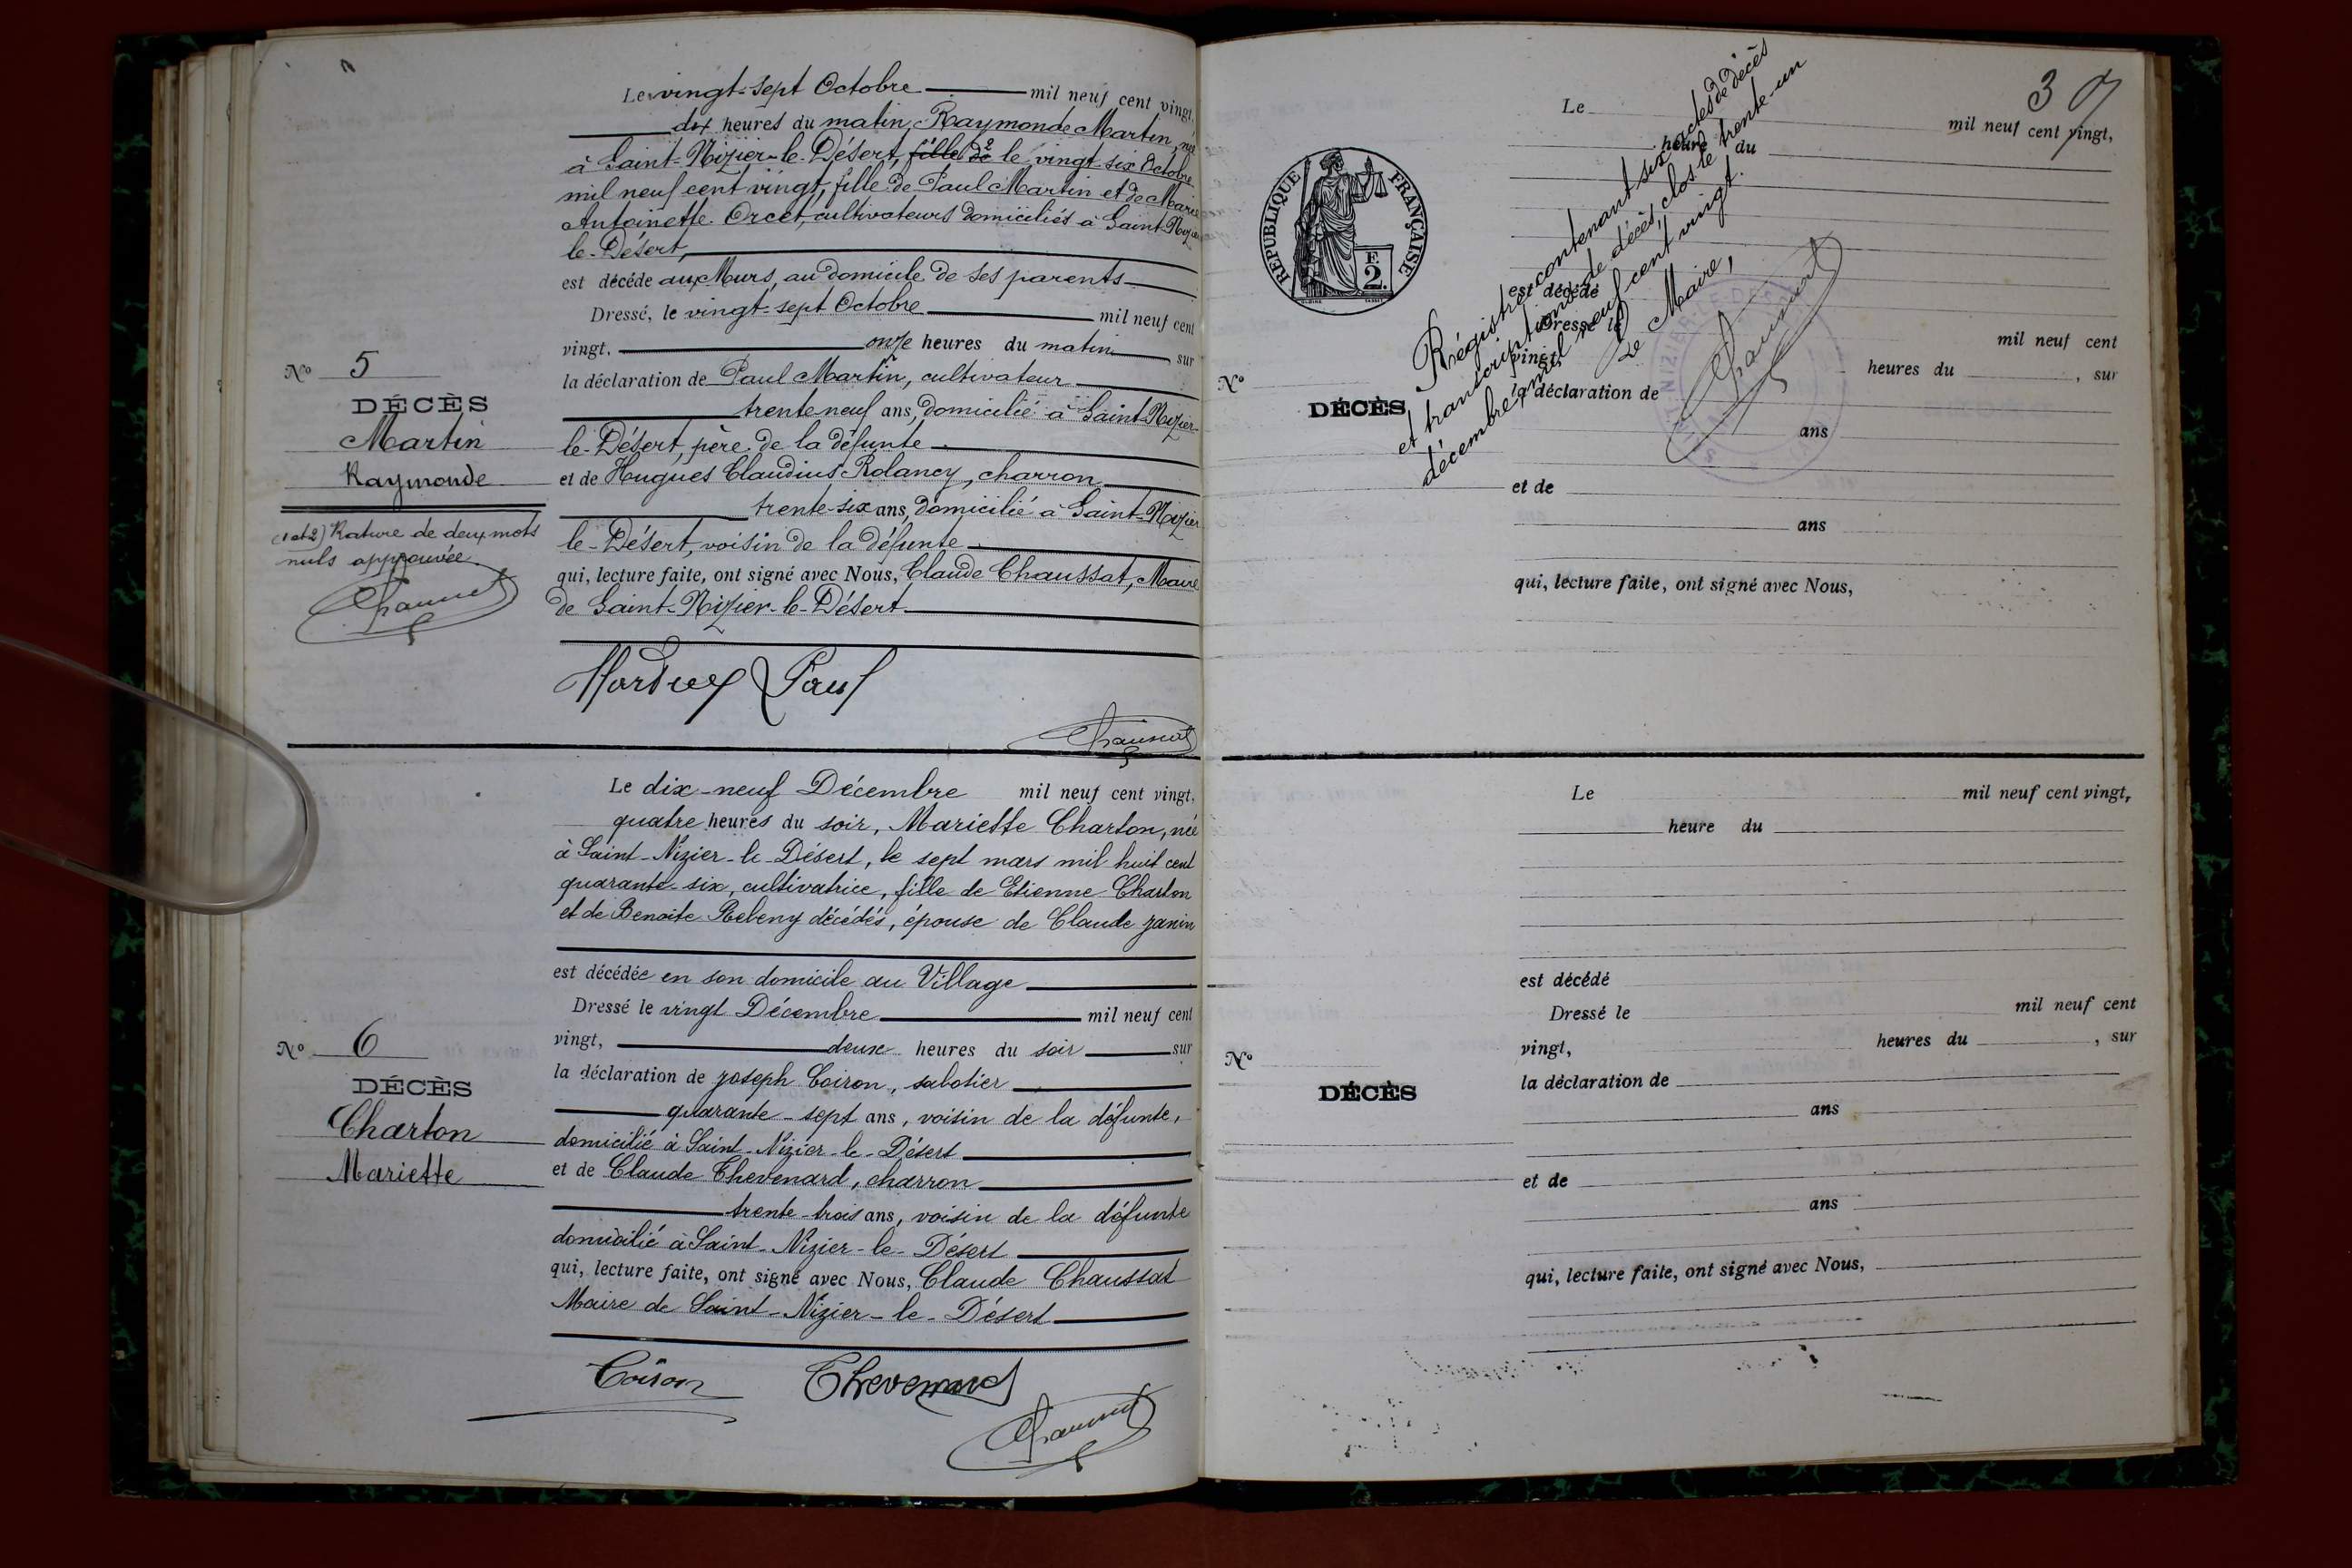 Le vingt-sept Octobre mil neuf cent vingt,
dix heures du matin, Raymonde Martin, née
à Saint-Nizier-le-Désert, fille de 2 le vingt-six Octobre
mil neuf cent vingt, fille de Paul Martin et de Marie
Antoinette Orcet, cultivateurs domiciliés à Saint-Nizier
le-Désert,
est décédé aux Murs, au domicile de ses parents
Dressé, le vingt-sept Octobre mil neuf cent
vingt, onze heures du matin, sur
la déclaration de Paul Martin, cultivateur
trente neuf ans, domicilié à Saint-Nizier-
le-Désert, père de la défunte
et de Hugues Claudius Rolancy, charron
trente-six ans, domicilié à Saint-Nizier
le-Désert, voisin de la défunte
qui, lecture faite, ont signé avec Nous, Claude Chaussat, Maire
de Saint-Nizier-le-Désert
No 5
DÉCÈS
Martin
Raymonde
(1 et 2) Rature de deux mots
nuls approuvée
Chaussat
Paul
Chaussat
Le dix-neuf Décembre mil neuf cent vingt,
quatre heures du soir, Mariette Charton, née
à Saint-Nizier-le-Désert, le sept mars mil huit cent
quarante-six, cultivatrice, fille de Etienne Charton
et de Benoite Rebeny décédés, épouse de Claude Janin
est décédée en son domicile au Village
Dressé le vingt Décembre mil neuf cent
vingt, deux heures du soir sur
la déclaration de Joseph Coiron, sabotier
quarante-sept ans, voisin de la défunte,
domicilié à Saint-Nizier-le-Désert
et de Claude Thevenard, charron
trente-trois ans, voisin de la défunte
domicilié à Saint-Nizier-le-Désert
qui, lecture faite, ont signé avec Nous, Claude Chaussat
Maire de Saint-Nizier-le-Désert
No 6
DÉCÈS
Charton
Mariette
Coiron Thevenard
Chaussat
3
Le mil neuf cent vingt,
heure du
RÉPUBLIQUE FRANÇAISE
F.
2.
Régistre contenant six actes de décès
et transcriptions de décès, clos le trente-un
décembre mil neuf cent vingt.
Le Maire,
Chaussat
est décédé
Dressé le mil neuf cent
vingt, heures du , sur
la déclaration de
ans
No
DÉCÈS
et de
ans
qui, lecture faite, ont signé avec Nous,
Le mil neuf cent vingt,
heure du
est décédé
Dressé le mil neuf cent
vingt, heures du , sur
No
la déclaration de
DÉCÈS
ans
et de
ans
qui, lecture faite, ont signé avec Nous,